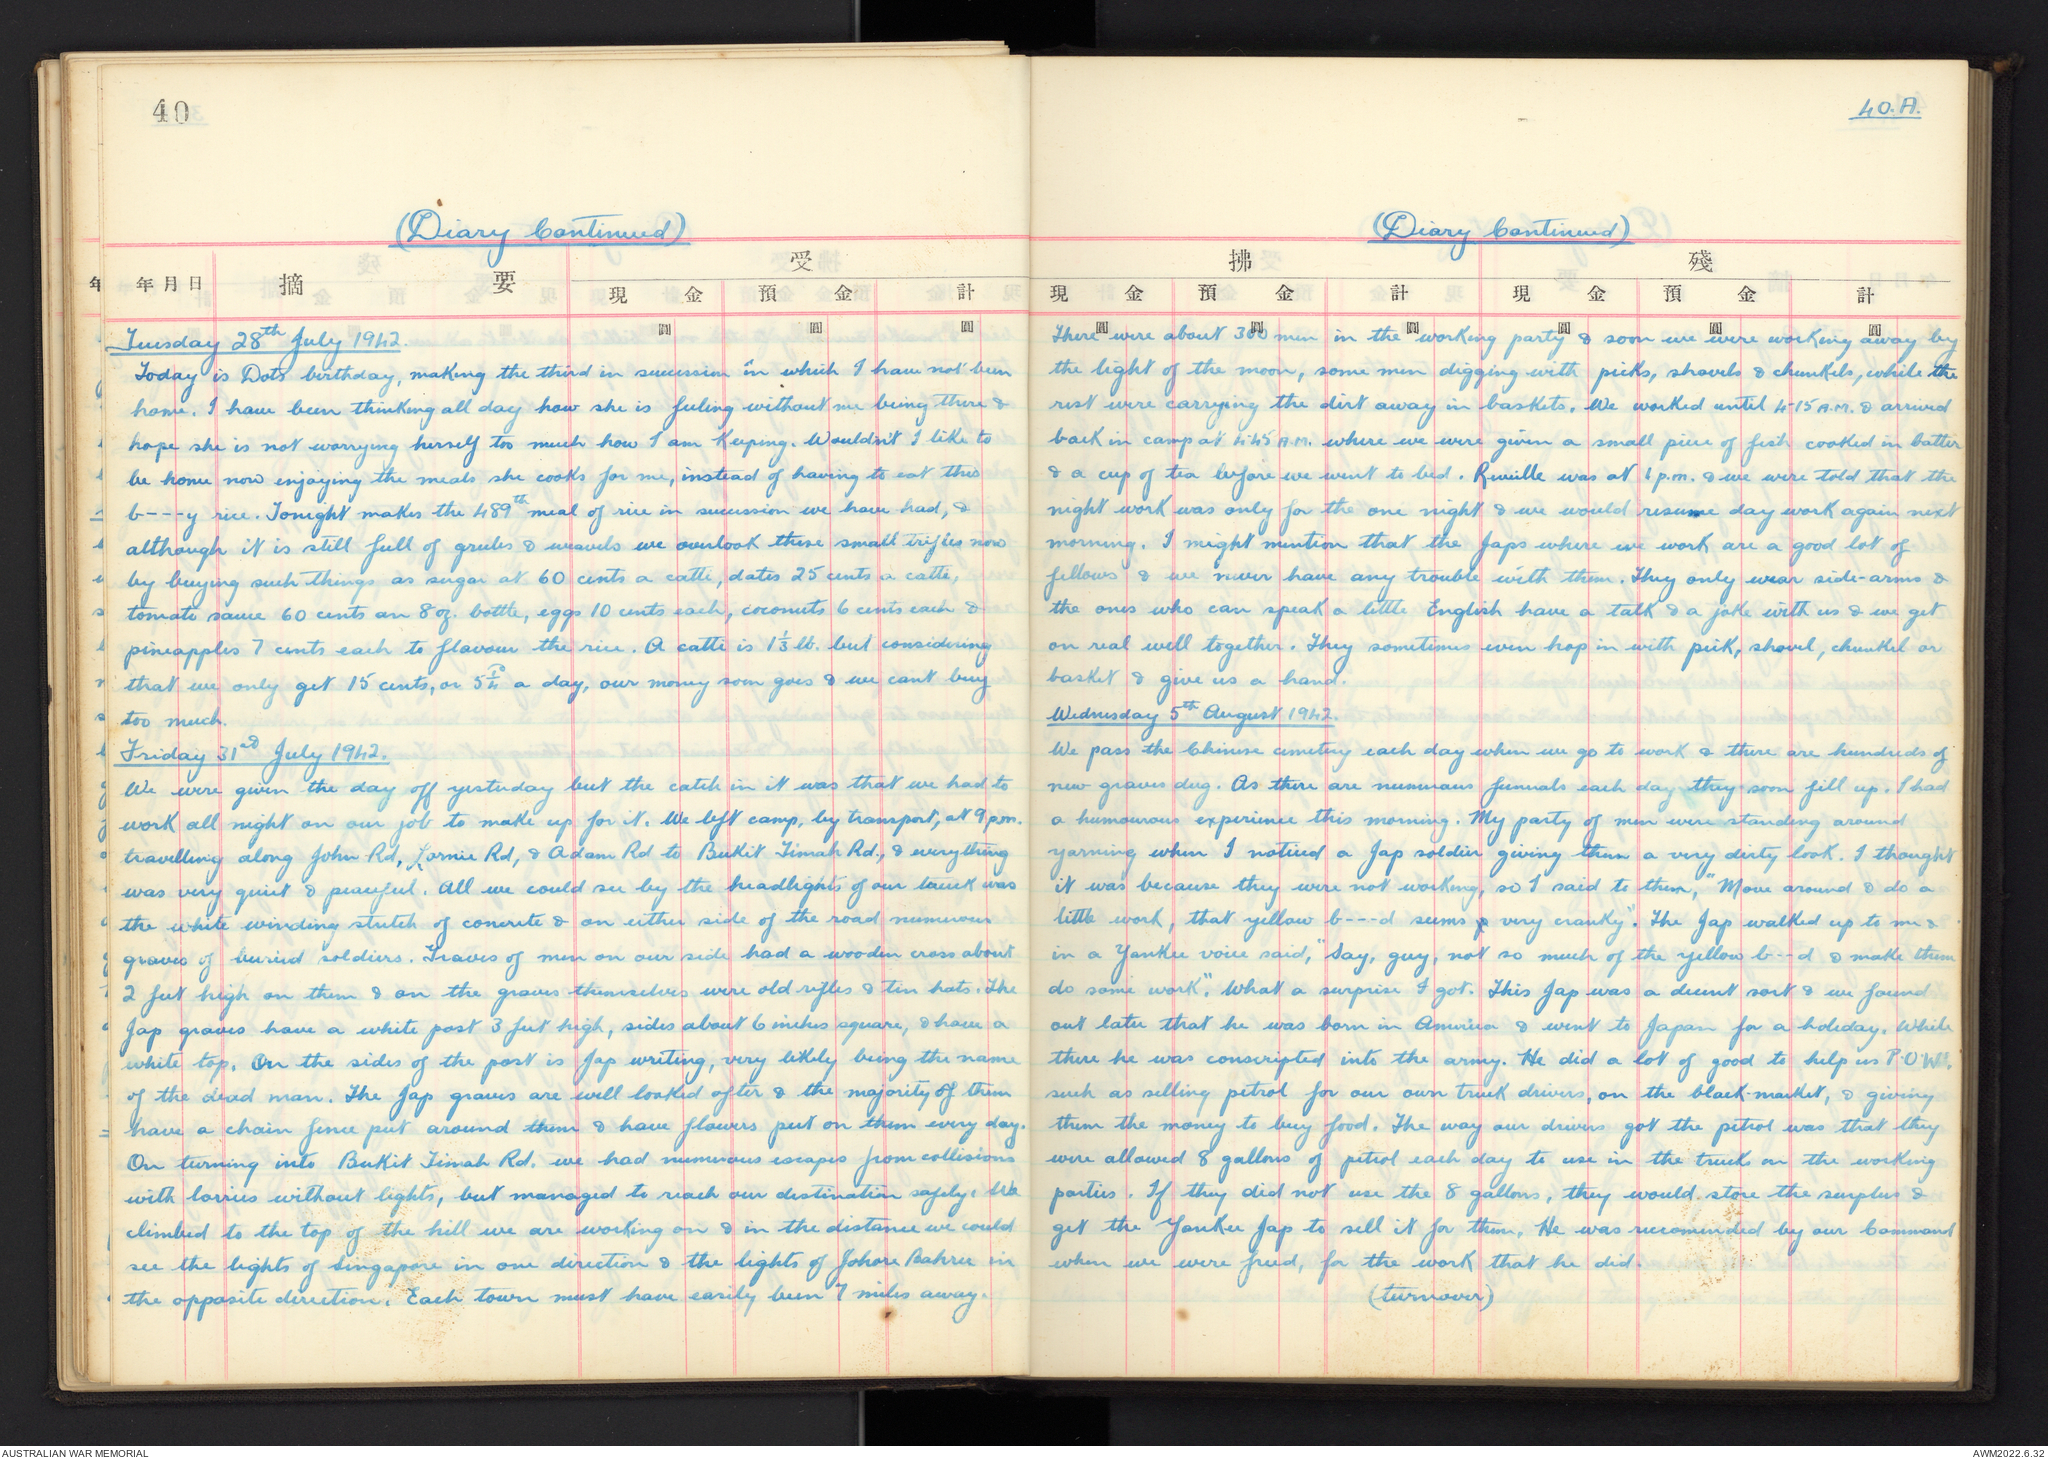 40
(Diary Continued)
年 年月日 摘 要 受
現 金 預 金 計
圓 圓 圓
Tuesday 28th July 1942.
Today is Dots birthday, making the third in sucession in which I have not been
home. I have been thinking all day how she is feeling without me being there &
hope she is not worrying herself too much how I am keeping. Wouldn't I like to
be home now enjoying the meals she cooks for me, instead of having to eat this
b----y rice. Tonight makes the 489th meal of rice in sucession we have had, &
although it is still full of grubs & weavels we overlook these small trifles now
by buying such things as sugar at 60 cents a catti, dates 25 cents a catti,
tomato sauce 60 cents an 8 oz. bottle, eggs 10 cents each, coconuts 6 cents each &
pineapples 7 cents each to flavour the rice. A catti is 1 1/3 lb. but considering
that we only get 15 cents, or 5 a day, our money soon goes & we cant buy
too much.
Friday 31st July 1942.
We were given the day off yesterday but the catch in it was that we had to
work all night on our job to make up for it. We left camp, by transport, at 9 p.m.
travelling along John Rd, Lornie Rd, & Adam Rd to Bukit Timah Rd., & everything
was very quiet & peaceful. All we could see by the headlights of our truck was
the white winding stretch of concrete & on either side of the road numerous
graves of buried soldiers. Graves of men on our side had a wooden cross about
2 feet high on them & on the graves themselves were old rifles & tin hats. The
Jap graves have a white post 3 feet high, sides about 6 inches square, & have a
white top. On the sides of the post is Jap writing, very likely being the name
of the dead man. The Jap graves are well looked after & the majority of them
have a chain fence put around them & have flowers put on them every day.
On turning into Bukit Timah Rd. we had numerous escapes from collisions
with lorries without lights, but managed to reach our destination safely. We
climbed to the top of the hill we are working on & in the distance we could
see the lights of Singapore in one direction & the lights of Johore Bahru in
the opposite direction. Each town must have easily been 7 miles away.
40.A.
(Diary Continued)
拂 殘
現 金 預 金 計 現 金 預 金 計
圓 圓 圓 圓 圓 圓
There were about 300 men in the working party & soon we were working away by
the light of the moon, some men digging with picks, shovels & chunkels, while the
rest were carrying the dirt away in baskets. We worked until 4-15 A.M. & arrived
back in camp at 4.45 A.M. where we were given a small piece of fish cooked in batter
& a cup of tea before we went to bed. Reveille was at 1 p.m. & we were told that the
night work was only for the one night & we would resume day work again next
morning. I might mention that the Japs where we work are a good lot of
fellows & we never have any trouble with them. They only wear side-arms &
the ones who can speak a little English have a talk & a joke with us & we get
on real well together. They sometimes even hop in with pick, shovel, chunkel or
basket & give us a hand.
Wednesday 5th August 1942.
We pass the Chinese cemetry each day when we go to work & there are hundreds of
new graves dug. As there are numerous funerals each day they soon fill up. I had
a humourous experience this morning. My party of men were standing around
yarning when I noticed a Jap soldier giving them a very dirty look. I thought
it was because they were not working, so I said to them, "Move around & do a
little work, that yellow b----d seems very cranky". The Jap walked up to me &
in a Yankee voice said, "Say, guy, not so much of the yellow b---d & make them
do some work". What a surprise I got. This Jap was a decent sort & we found
out later that he was born in America & went to Japan for a holiday. While
there he was conscripted into the army. He did a lot of good to help us P.O.W's.
such as selling petrol for our own truck drivers, on the black-market, & giving
them the money to buy food. The way our drivers got the petrol was that they
were allowed 8 gallons of petrol each day to use in the truck on the working
parties. If they did not use the 8 gallons, they would store the surplus &
get the Yankee Jap to sell it for them. He was recomended by our Command
when we were freed, for the work that he did.
(turnover)
AUSTRALIAN WAR MEMORIAL
AWM2022.6.32